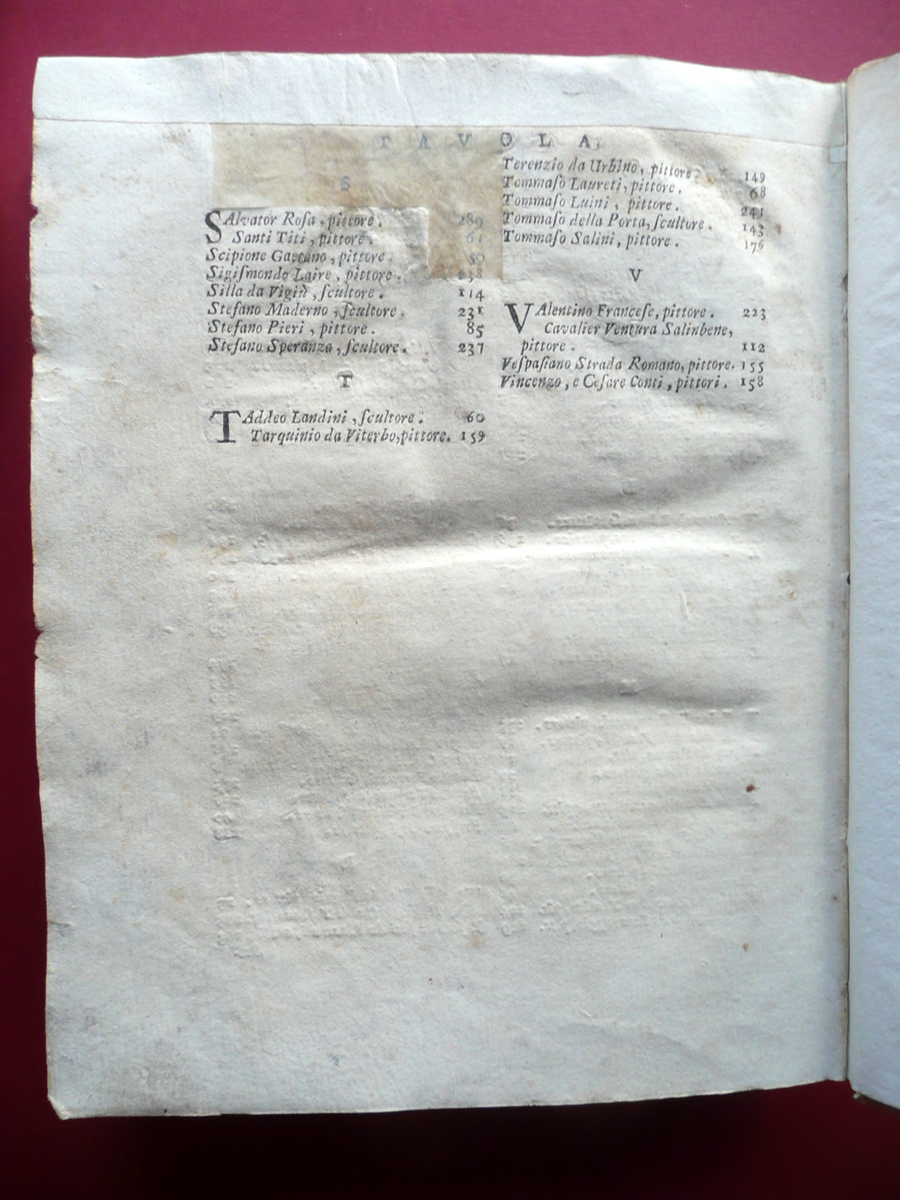 TAVOLA
S
SAlvator Rosa, pittore. 289
Santi Titi, pittore. 61
Scipione Gaetano, pittore. 50
Sigiſmondo Laire, pittore. 238
Silla da Vigiù, ſcultore. 114
Stefano Maderno, ſcultore. 231
Stefano Pieri, pittore. 85
Stefano Speranza, ſcultore. 237
T
TAddeo Landini, ſcultore. 60
Tarquinio da Viterbo, pittore. 159
Terenzio da Urbino, pittore. 149
Tommaſo Laureti, pittore. 68
Tommaſo Luini, pittore. 241
Tommaſo della Porta, ſcultore. 143
Tommaſo Salini, pittore. 176
V
VAlentino Franceſe, pittore. 223
Cavalier Ventura Salinbene,
pittore. 112
Veſpaſiano Strada Romano, pittore. 155
Vincenzo, e Ceſare Conti, pittori. 158